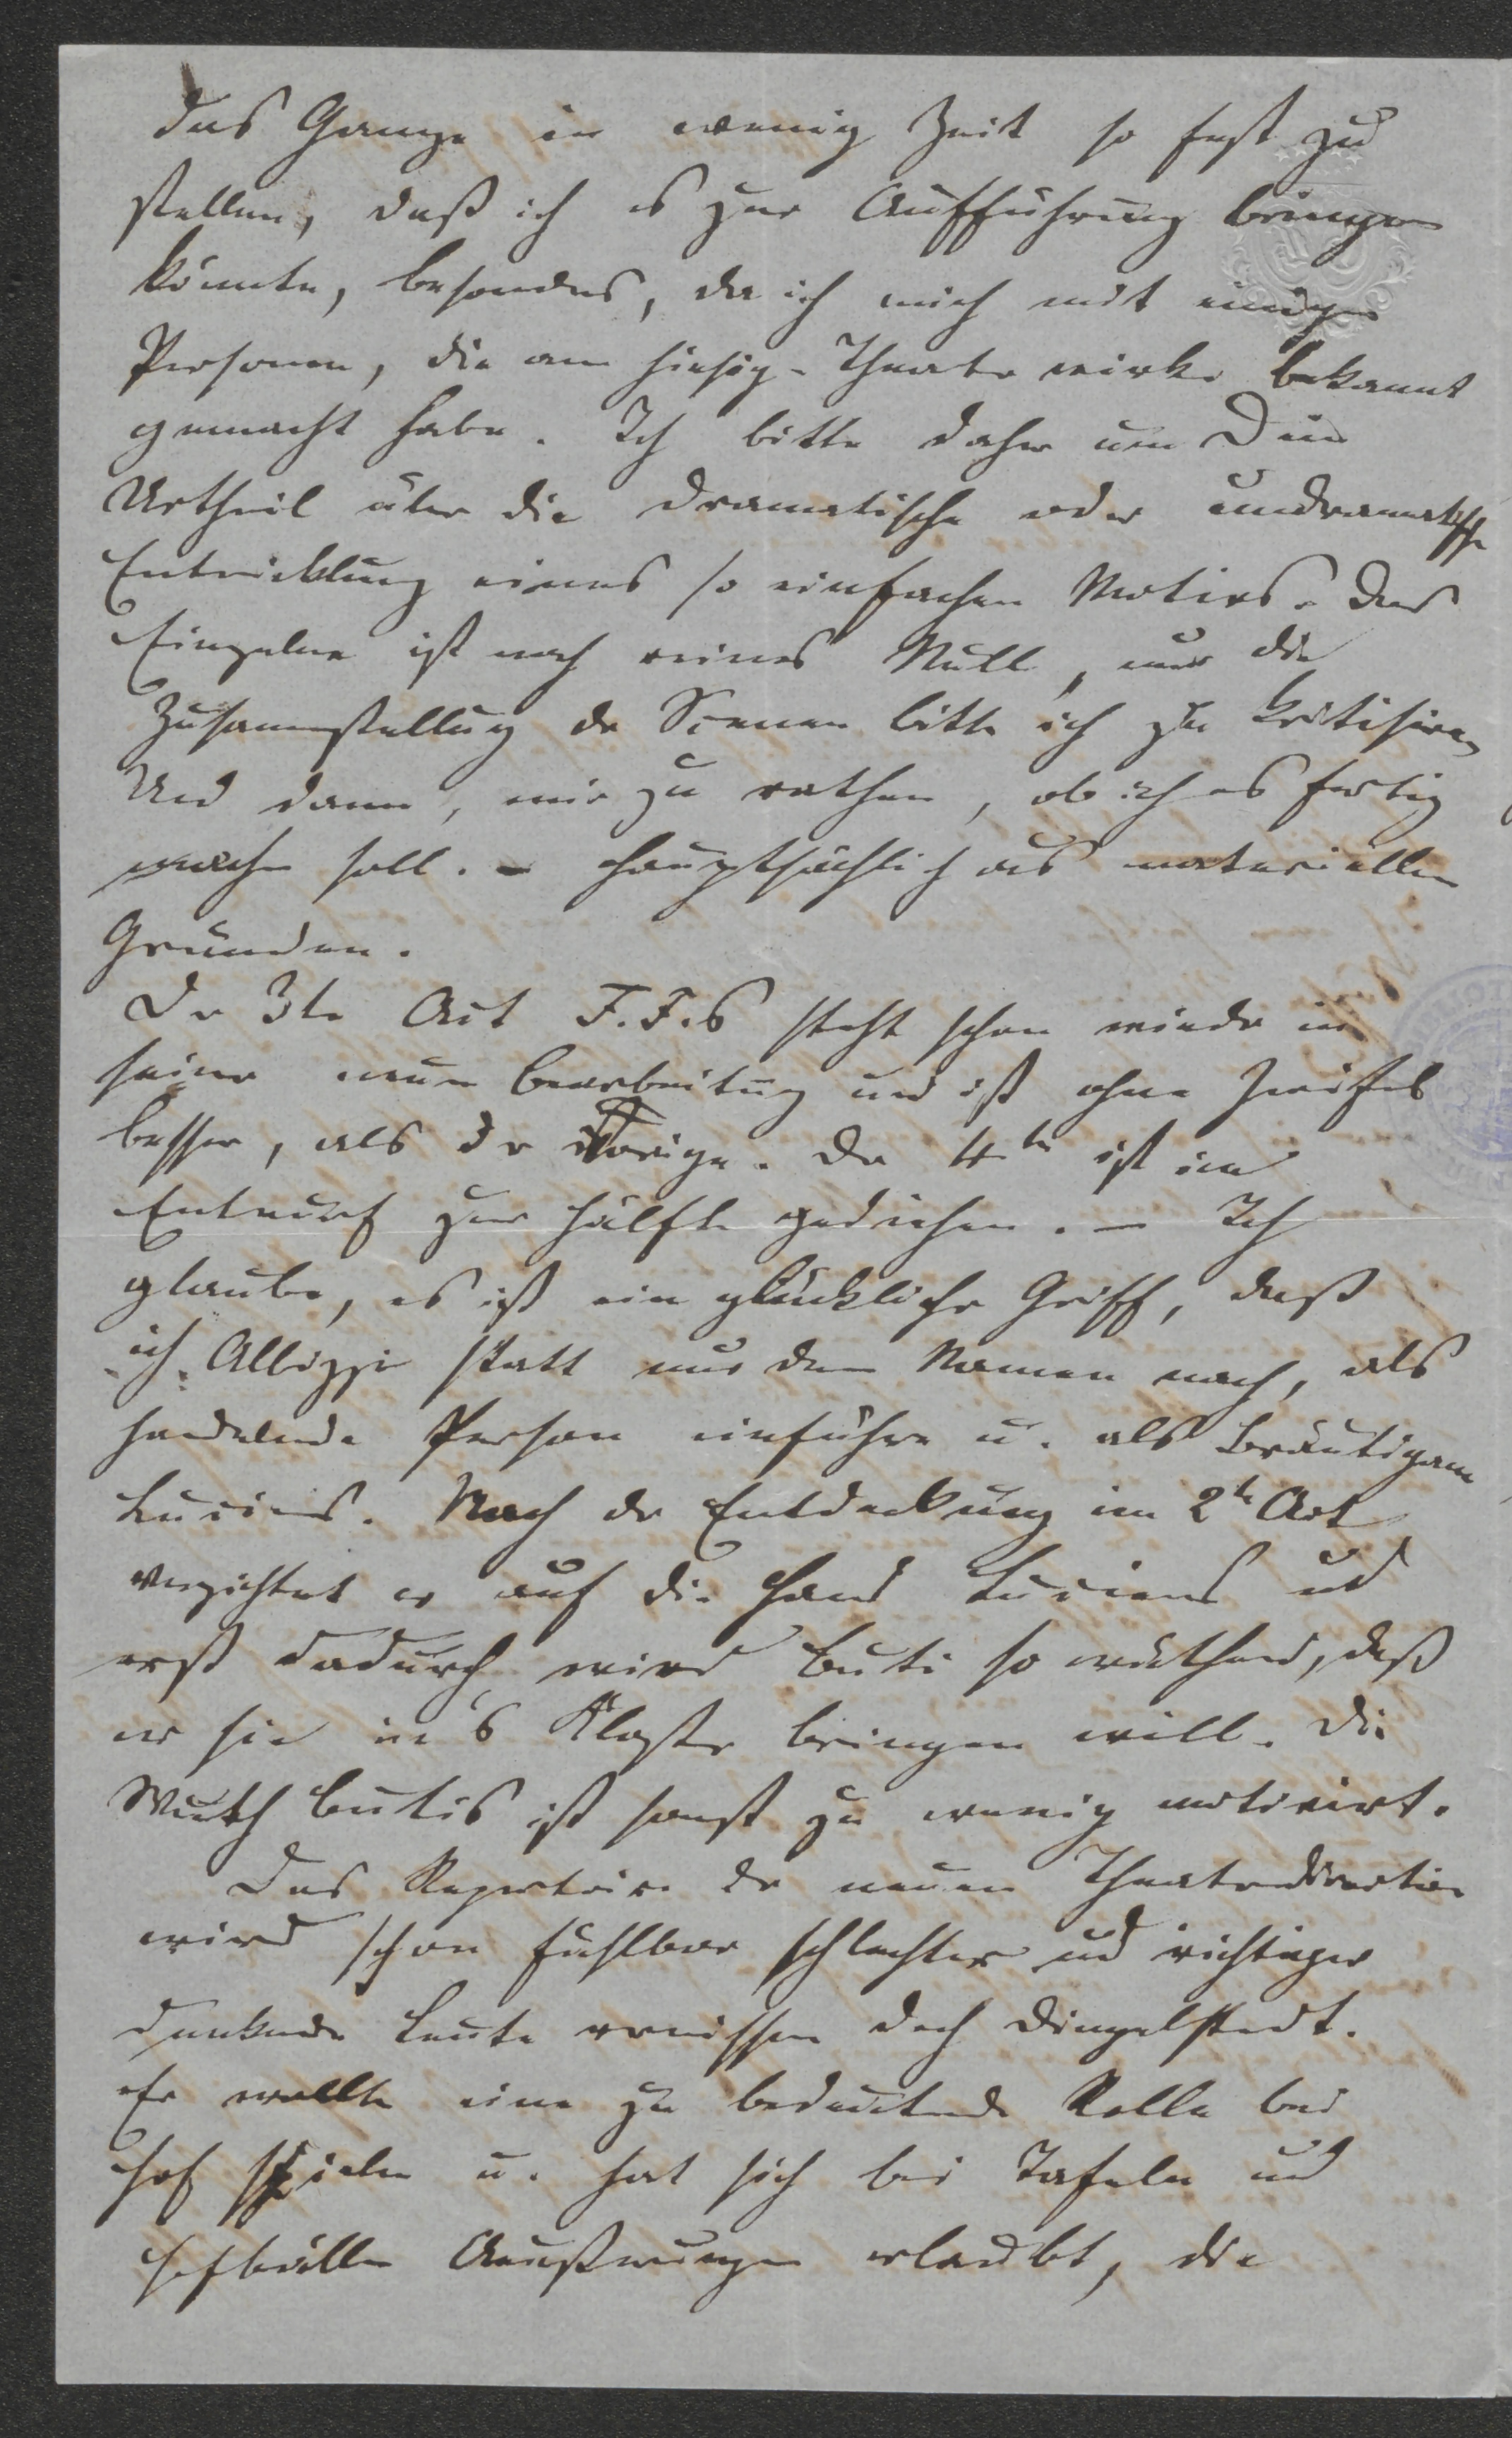 das Ganze in wenig Zeit so fest zu
stellen, daß ich es zur Aufführung bringen
könnte, besonders, da ich mich mit einigen
Personen, die am hiesig. Theater wirken bekannt
gemacht habe. Ich bitte daher um Dein
Urtheil über die dramatische oder undramatische
Entwicklung eines so einfachen Motivs. Das
Einzelne ist noch reines Null, nur die
Zusammenstellung der Scenen bitte ich zu kritisiren
Und dann, mir zu rathen, ob ich es fertig
machen soll. – hauptsächlich aus materiellen
Gründen.
Der 3te Act F.F.s steht schon wieder in
seiner neuen Bearbeitung und ist ohne Zweifel
besser, als der vorige. Der 4te ist im
Entwurf zur Hälfte gediehen. – Ich
glaube, es ist ein glücklicher Griff, daß
ich Albizzi statt nur dem Namen nach, als
handelnde Person einführe u. als Bräutigam
Luciens. Nach der Entdeckung im 2te Act
verzichtet er auf die Hand Luciens und
erst dadurch wird Buti so wüthend, daß
er sie in's Kloster bringen will. Die
Wuth Butis ist sonst zu wenig motivirt.
Das Repertoire der neuen Theaterdirection
wird schon fühlbar schlechter und richtiger
denkende Leute vermissen doch Dingelstedt.
Er wollte eine zu bedeutende Rolle bei
Hof spielen u. hat sich bei Tafeln und
Hofbällen Äußerungen erlaubt, die